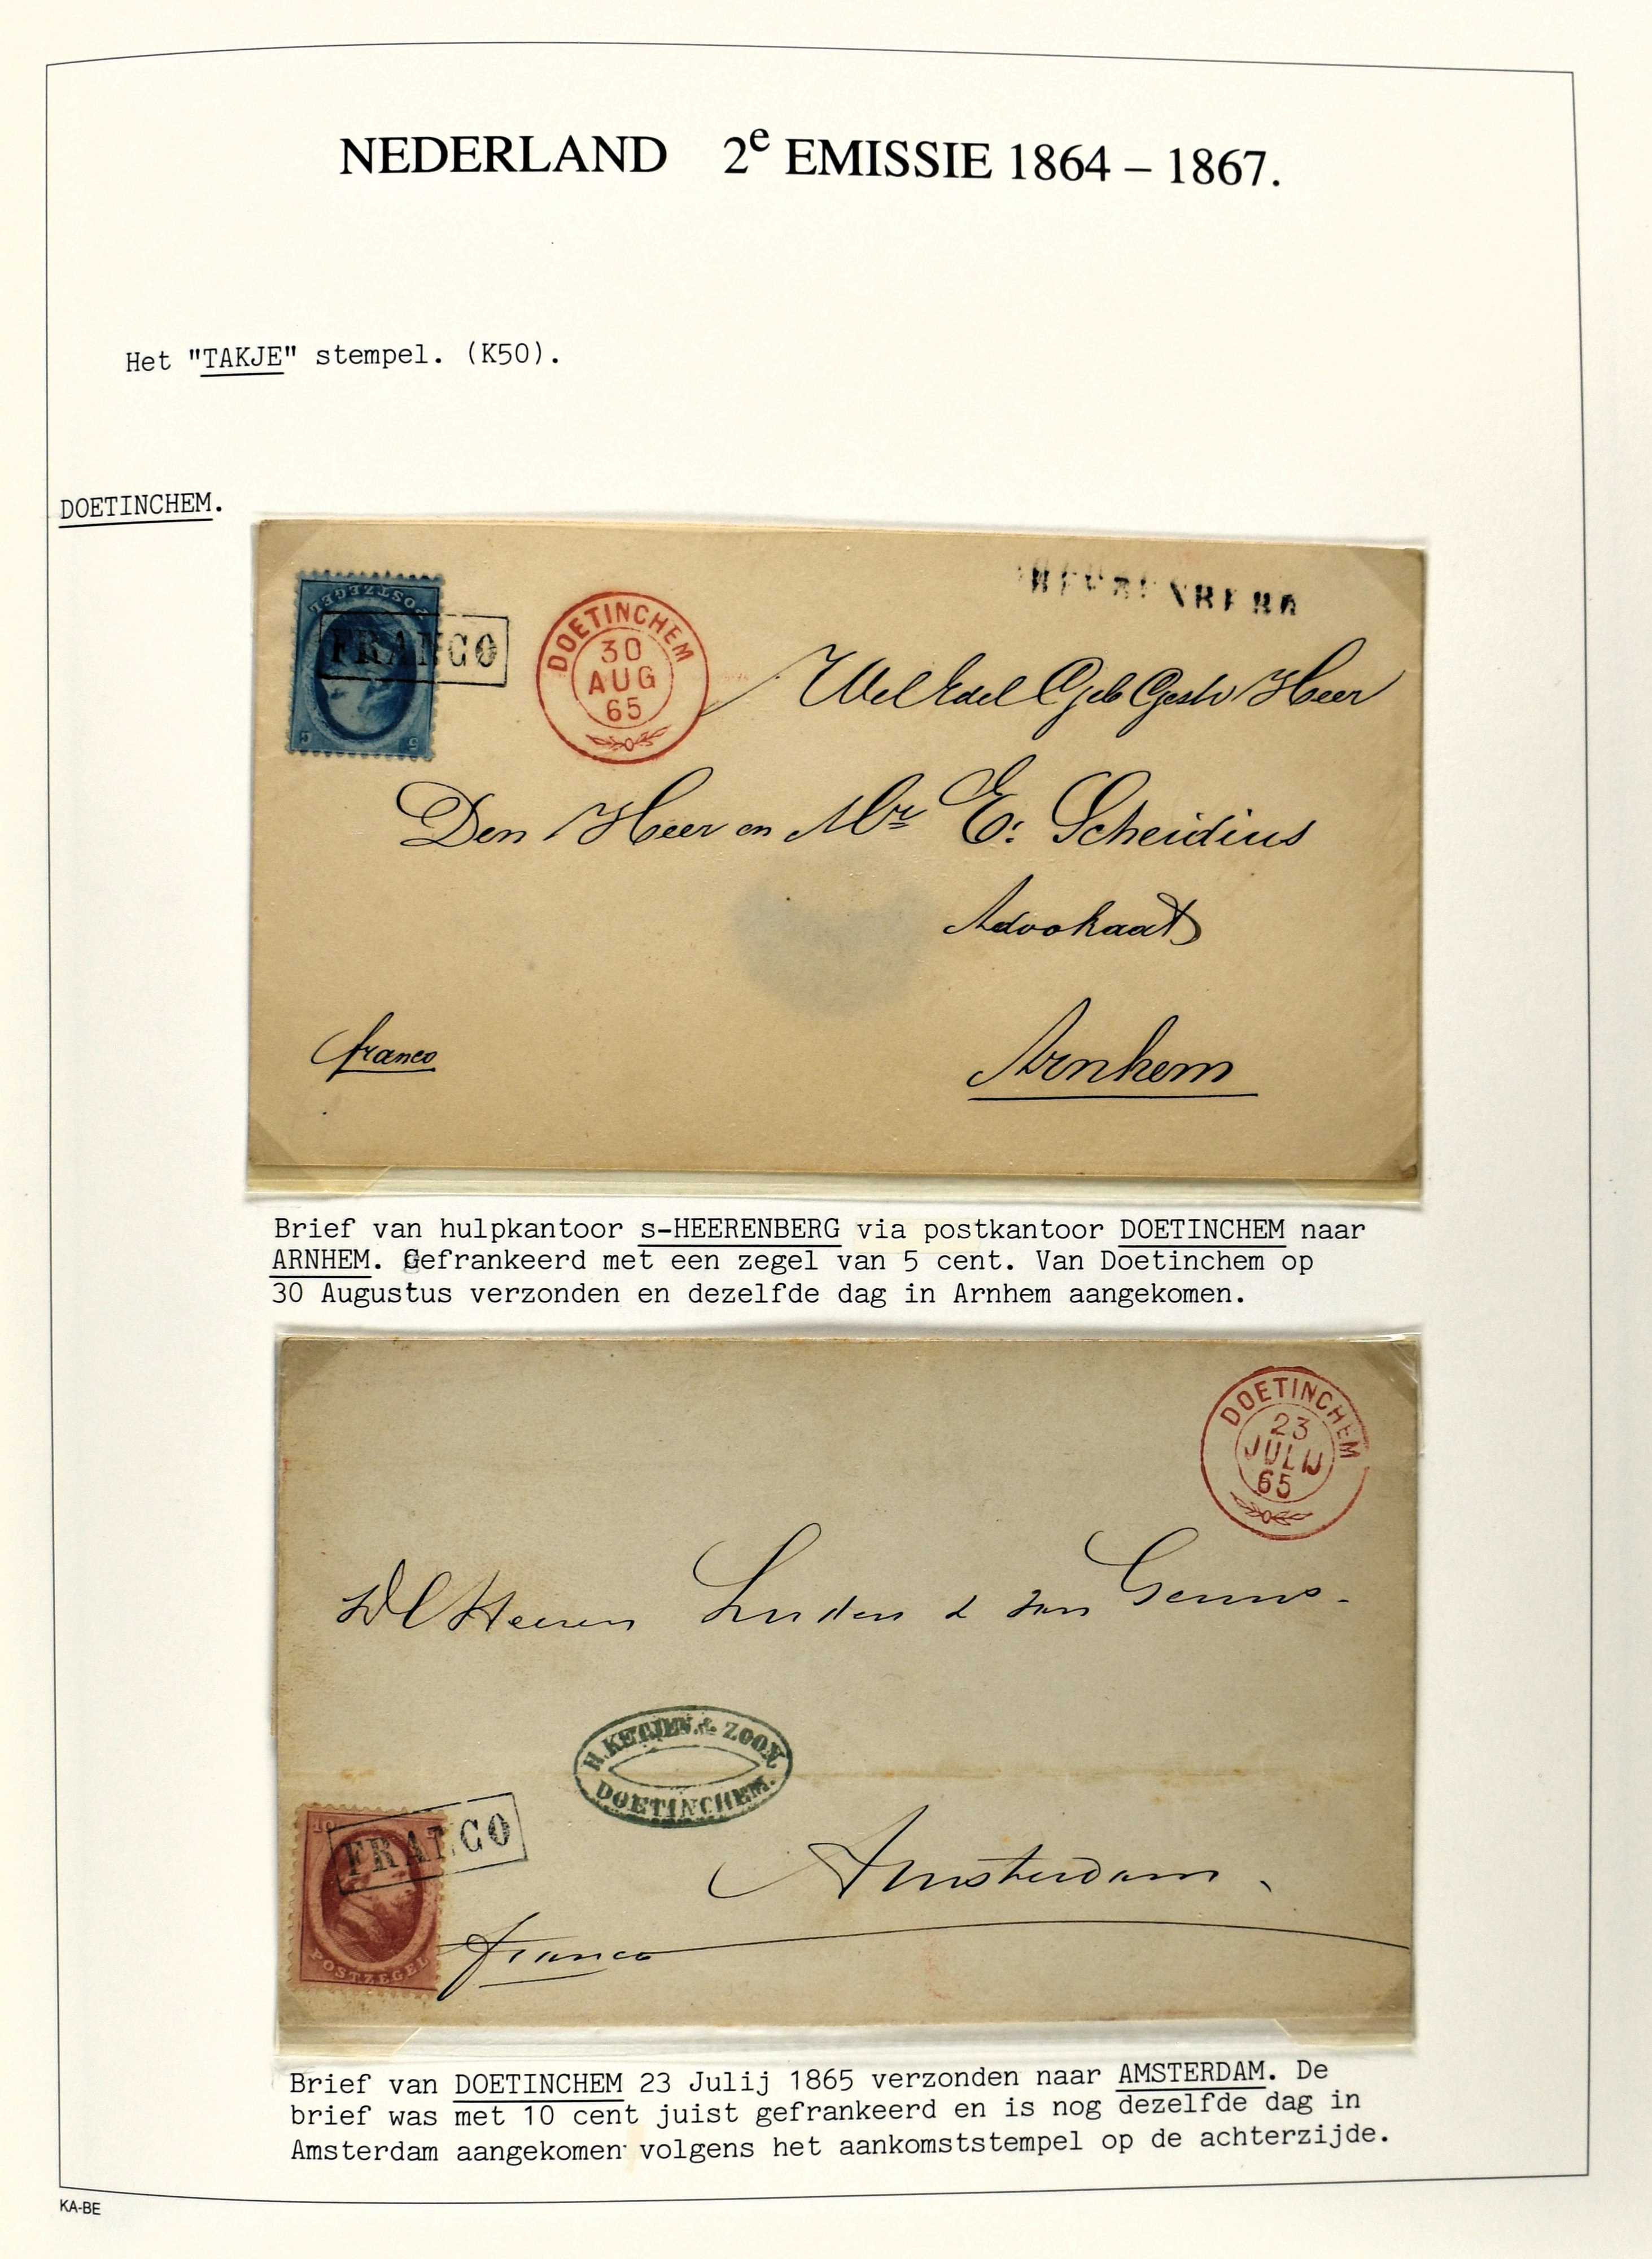 NEDERLAND 2e EMISSIE 1864 – 1867.
Het "TAKJE" stempel. (K50).
DOETINCHEM.
POSTZEGEL
5 C
FRANCO
DOETINCHEM
30
AUG
65
Wel Edel Geb Gestr Heer
Den Heer en Mr E: Scheidius
Advokaat
franco
Arnhem
Brief van hulpkantoor s-HEERENBERG via postkantoor DOETINCHEM naar
ARNHEM. Gefrankeerd met een zegel van 5 cent. Van Doetinchem op
30 Augustus verzonden en dezelfde dag in Arnhem aangekomen.
DOETINCHEM
23
JULIJ
65
Heeren
& van
& ZOON.
DOETINCHEM.
10
FRANCO
POSTZEGEL
Amsterdam
franco
Brief van DOETINCHEM 23 Julij 1865 verzonden naar AMSTERDAM. De
brief was met 10 cent juist gefrankeerd en is nog dezelfde dag in
Amsterdam aangekomen volgens het aankomststempel op de achterzijde.
KA-BE